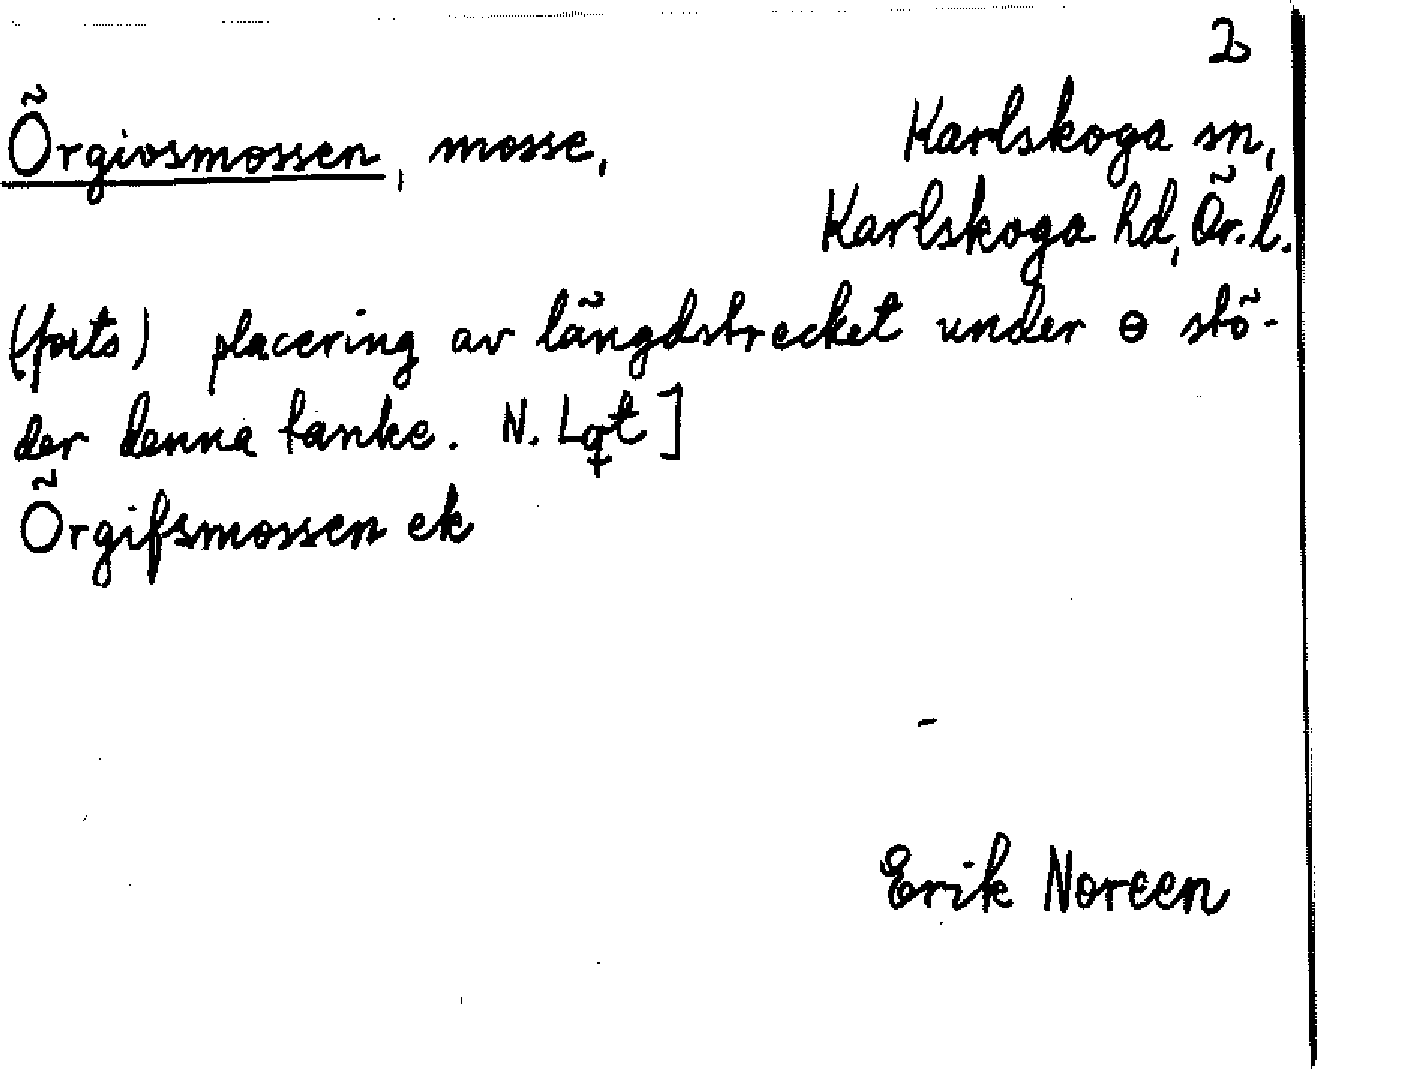 2
Örgivsmossen, mosse, Karlskoga sn,
Karlskoga hd, Ör.l.
(forts) placering av längdstrecket under ɵ stö-
der denna tanke. N. Lqt]
Örgifsmossen ek
Erik Noreen